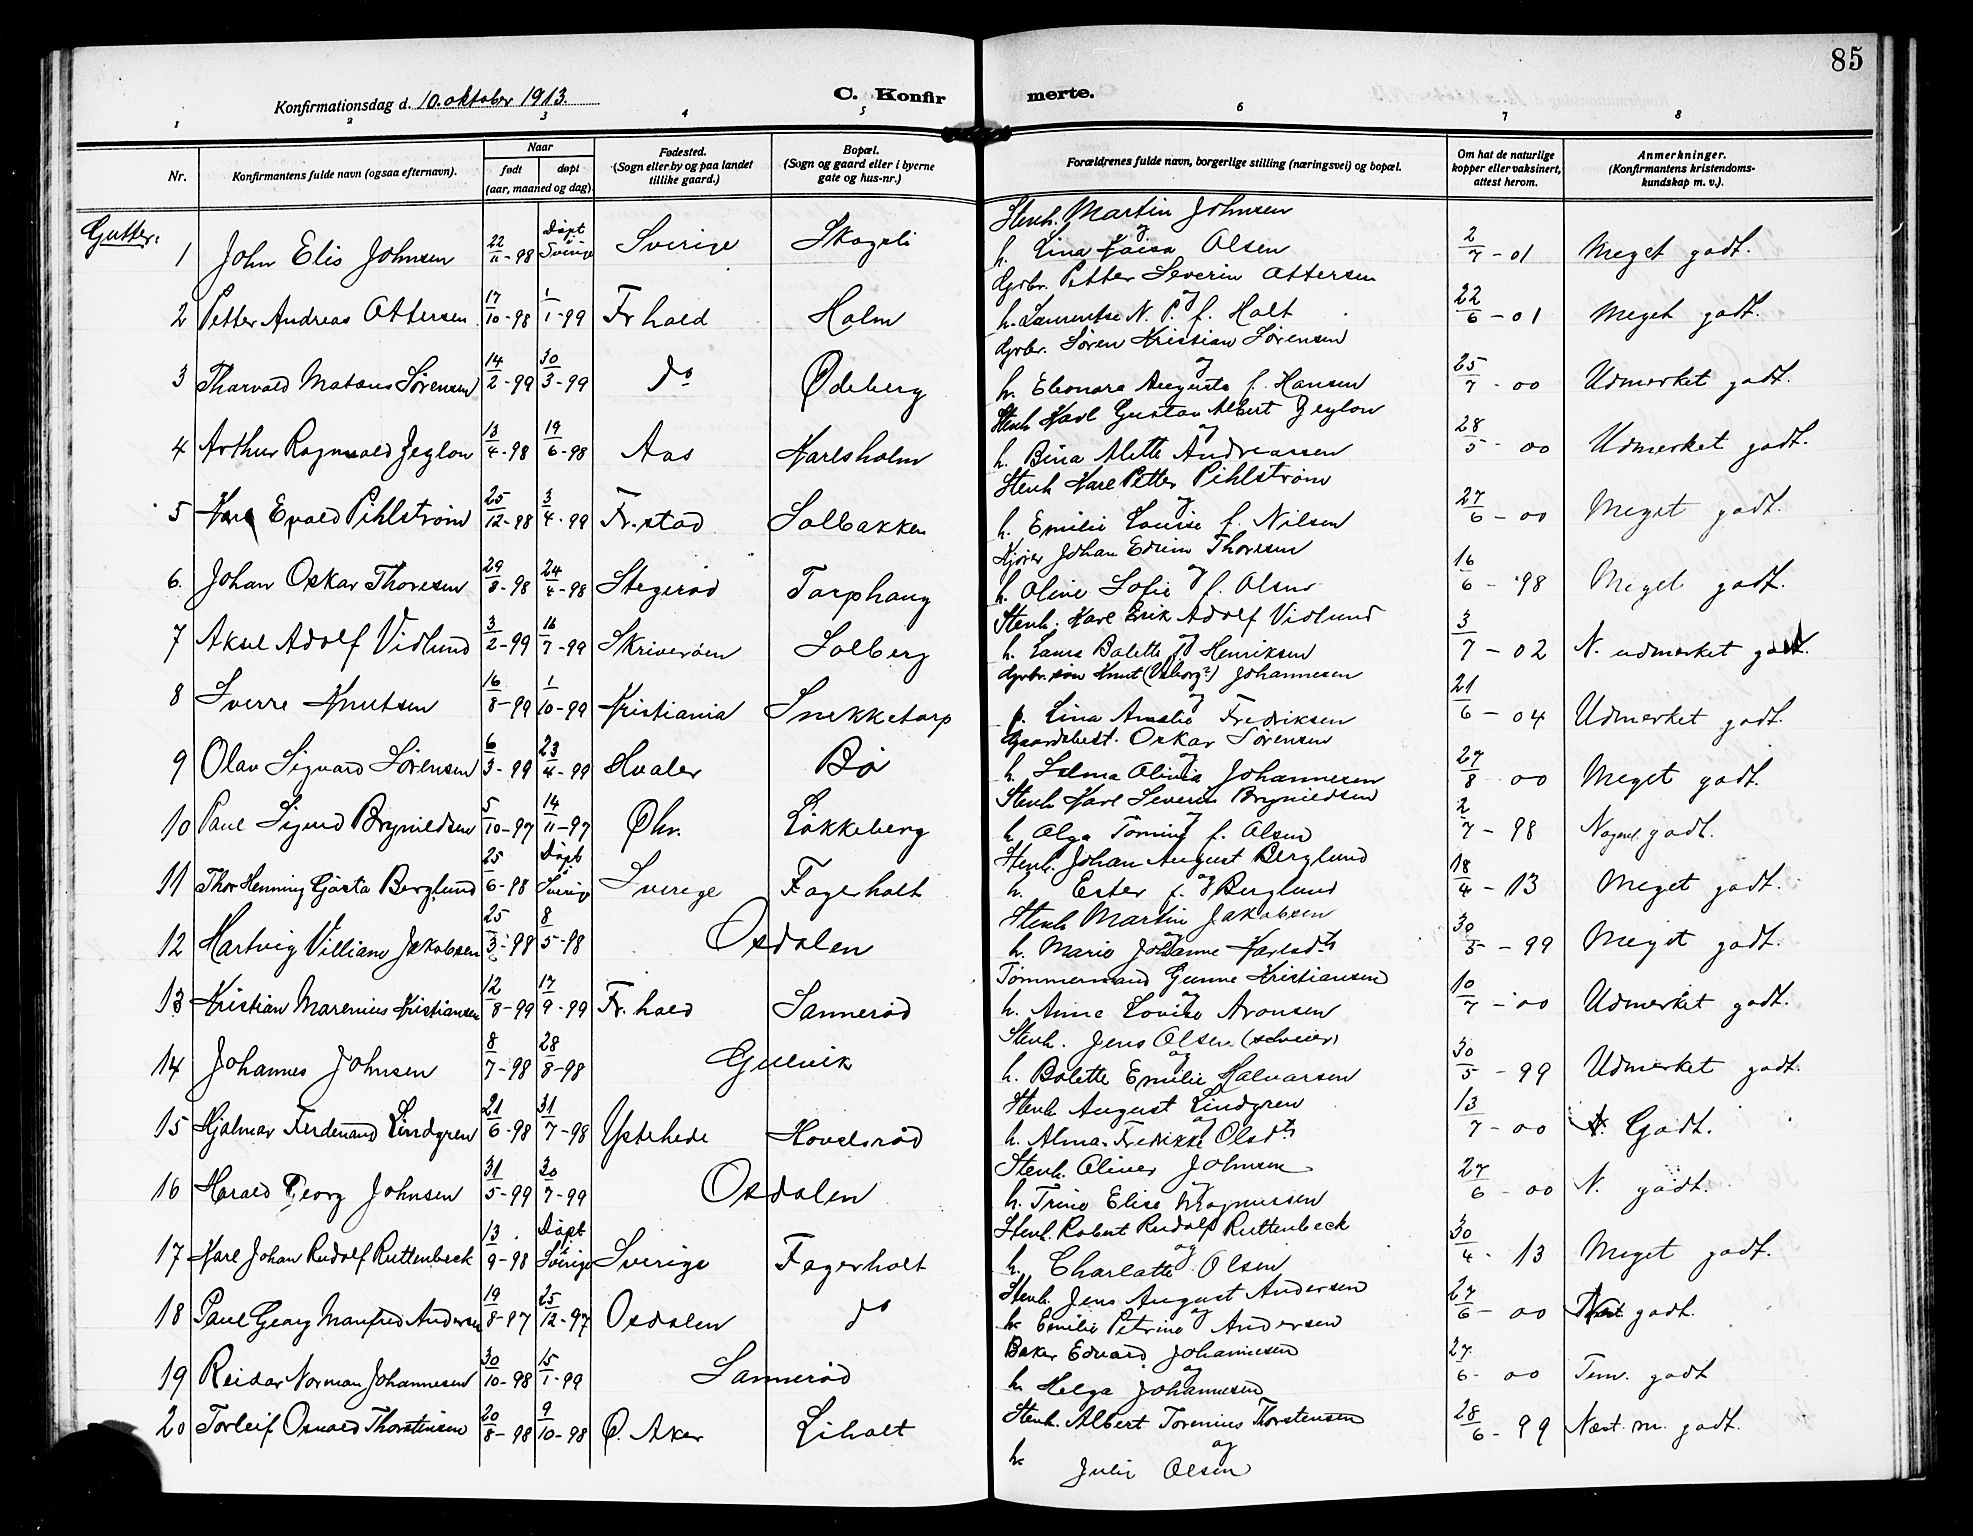 85
Konfirmationsdag d. 10. oktober 1913.
C. Konfirmerte.
1 2 3 4 5 6 7 8
Nr. Konfirmantens fulde navn (ogsaa efternavn). Naar født døpt (aar, maaned og dag) Fødested. (Sogn eller by og paa landet tillike gaard.) Bopæl. (Sogn og gaard eller i byerne gate og hus-nr.) Forældrenes fulde navn, borgerlige stilling (næringsvei) og bopæl. Om hat de naturlige kopper eller vaksinert, attest herom. Anmerkninger. (Konfirmantens kristendoms-kundskap m. v.).
Gutter:
1 John Elis Johnsen 22/11-98 Døpt i Sverige Sverige Skogli Stenh. Martin Johnsen og h. Lina Kaisa Olsen 2/7-01 Meget godt.
2 Petter Andreas Ottersen 17/10-98 1/1-99 Fr.hald Holm Grbr. Petter Severin Ottersen og h. Laurentse N. P. f. Holt 22/6-01 Meget godt.
3 Tharvald Mataus Sørensen 14/2-99 30/3-99 do Ødeberg Grbr. Søren Kristian Sørensen og h. Eleonora Augusta f. Hansen 25/7-00 Udmerket godt.
4 Arthur Ragnvald Jeglon 13/4-98 19/6-98 Aas Karlsholm Stenh Karl Gustav Albert Jeglon og h. Bina Alette Andreassen 28/5-00 Udmerket godt.
5 Karl Evald Pihlstrøm 25/12-98 3/4-99 Fr.stad Solbakken Stenh Karl Petter Pihlstrøm og h. Emilie Louise f. Nilsen 27/6-00 Meget godt.
6. Johan Oskar Thoresen 29/8-98 24/4-98 Stegerød Torphaug Kjører Johan Edvin Thoresen og h. Olive Sofie f. Olsen 16/6-98 Meget godt.
7 Aksel Adolf Vidlund 3/2-99 16/7-99 Skriverøen Solberg Stenh. Karl Erik Adolf Vidlund og h. Laura Bolette Henriksen 3/7-02 N. udmerket godt.
8 Sverre Knutsen 16/8-99 1/10-99 Kristiania Snekketorp Grbr. søn Knut Johannesen og p. Lina Amalie Fredriksen 21/6-04 Udmerket godt.
9 Olav Sigvard Sørensen 6/3-99 23/4-99 Hvaler Bø Gaardsbest. Oskar Sørensen og h. Selma Olivia Johannesen 27/8-00 Meget godt.
10 Paul Sigurd Brynildsen 5/10-97 14/11-97 Øhr. Løkkeberg Stenh Karl Severin Brynildsen og h. Olga f. Olsen 2/7-98 Noget godt.
11 Thor Henning Gøsta Berglund 25/6-98 Døpt i Sverige Sverige Fagerholt Stenh. Johan August Berglund og h. Ester f. Berglund 18/4-13 Meget godt.
12 Hartvig Villiam Jakobsen 25/3-98 8/5-98 Osdalen Stenh Martin Jakobsen og h. Marie Johanne Karlsdt. 30/5-99 Meget godt.
13 Kristian Marenius Kristiansen 12/8-99 17/9-99 Fr.hald Sannerød Tømmermand Gunne Kristiansen og h. Anna Lovise Aronsen 10/7-00 Udmerket godt.
14 Johannes Johnsen 8/7-98 28/8-98 Gulvik Stenh. Jens Olsen og h. Bolette Emilie Halvorsen 30/5-99 Udmerket godt.
15 Hjalmar Ferdenand Lindgren 21/6-98 31/7-98 Ystehede Hovelsrød Stenh August Lindgren og h. Alma Fredrikke Olsdt. 13/7-00 Godt.
16 Harald Georg Johnsen 31/5-99 30/7-99 Osdalen Stenh. Oliver Johnsen og h. Trine Elise Magnussen 27/6-00 N. godt.
17 Karl Johan Rudolf Ruttenbeck 13/9-98 Døpt i Sverige Sverige Fagerholt Stenh. Robert Rudolf Ruttenbeck og h. Charlatte Olsen 30/4-13 Meget godt.
18 Paul Georg Manfred Andersen 19/8-97 25/12-97 Osdalen do Stenh. Jens August Andersen og h. Emilie Petrine Andersen 27/6-00 godt.
19 Reidar Norman Johannesen 30/10-98 15/1-99 Sannerød Baker Edvard Johannesen og h. Helga Johannesen 27/6-00 Tem. godt
20 Torleif Osvald Thorstensen 20/8-98 9/10-98 Ø. Aker Liholt Stenh. Albert Torenius Thorstensen og h. Julie Olsen 28/6-99 Næst. m. godt.